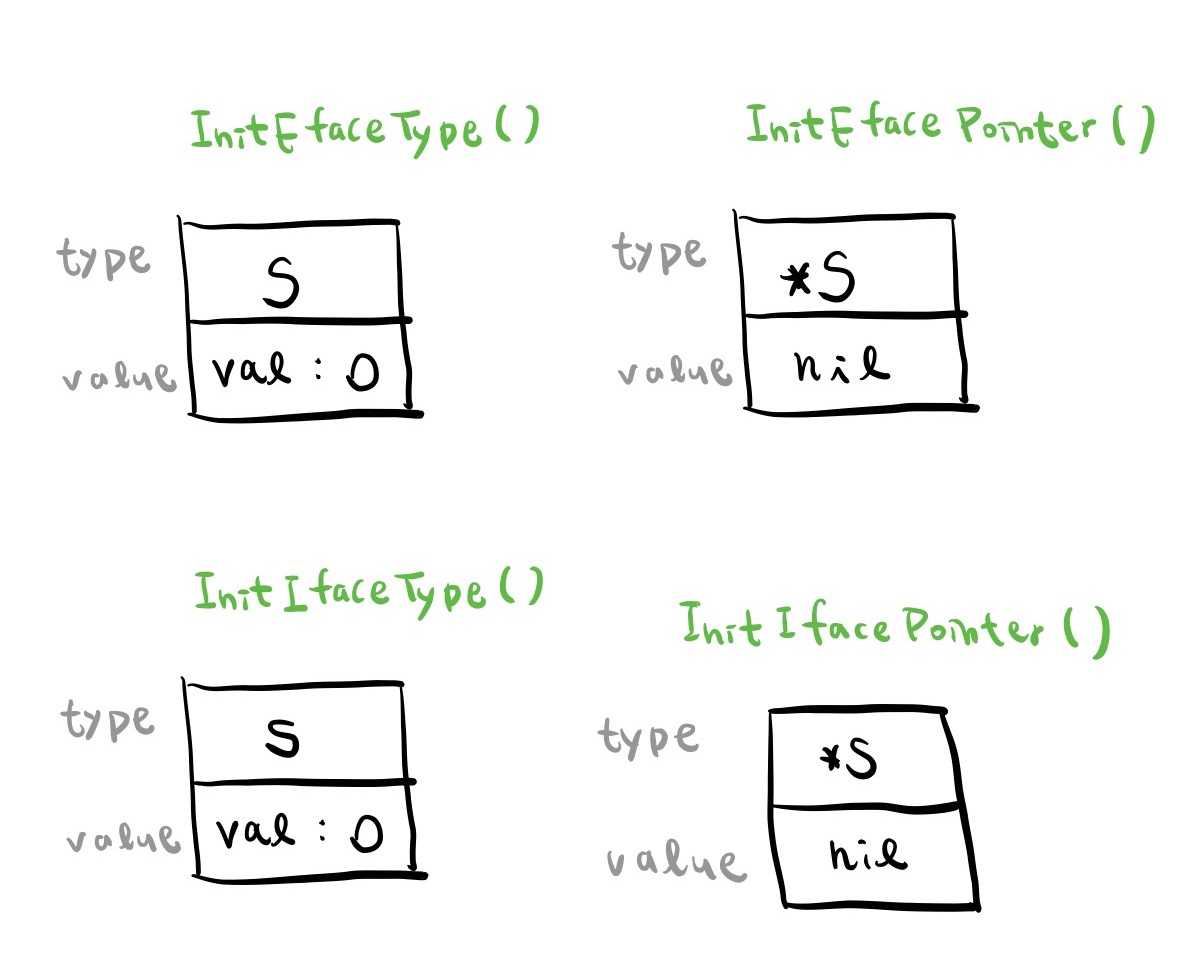 InitEfaceType()
type
S
value
val : 0
InitEfacePointer()
type
*S
value
nil
InitIfaceType()
type
S
value
val : 0
InitIfacePointer()
type
*S
value
nil